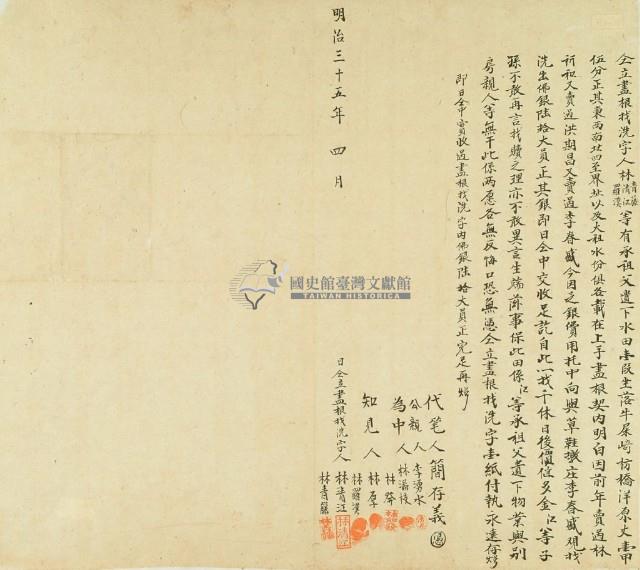 仝立盡根找洗字人林青藤清江羅漢等有承祖父遺下水田壹段坐落牛屎崎枋橋洋原丈壹甲
伍分正其東西南北四至界址以及大租水份俱各載在上手盡根契內明白因前年賣過林
祈和又賣過洪期昌又賣過李春盛今因乏銀費用托中向與草鞋墩庄李春盛觀找
洗出佛銀陸拾大員正其銀即日仝中交收足訖自此一找千休日後價值多金江等子
孫不敢再言找贖之理亦不敢異言生端滋事保此田係江等承祖父遺下物業與別
房親人等無干此係兩愿各無反悔口恐無憑仝立盡根找洗字壹紙付執永遠存炤
即日仝中實收過盡根找洗字內佛銀陸拾大員正完足再炤
代筆人簡存義
公親人李湧水
為中人林
林
知見人林厚
林羅漢
日仝立盡根找洗字人林清江
林青藤
明治三十五年四月
國史館臺灣文獻館
TAIWAN HISTORICA